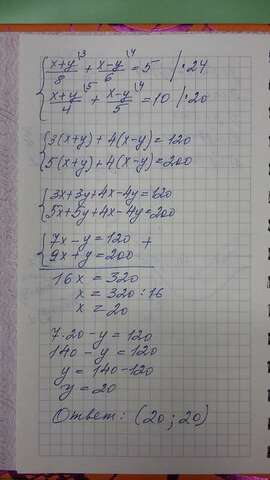 { (x+y)/8 \3 + (x-y)/6 \4 = 5 | · 24
{ (x+y)/4 \5 + (x-y)/5 \4 = 10 | · 20
{ 3(x+y) + 4(x-y) = 120
{ 5(x+y) + 4(x-y) = 200
{ 3x+3y+4x-4y=120
{ 5x+5y+4x-4y=200
{ 7x-y=120 +
{ 9x+y=200
16x = 320
x = 320:16
x = 20
7·20-y=120
140-y=120
y=140-120
y=20
Ответ: (20; 20)